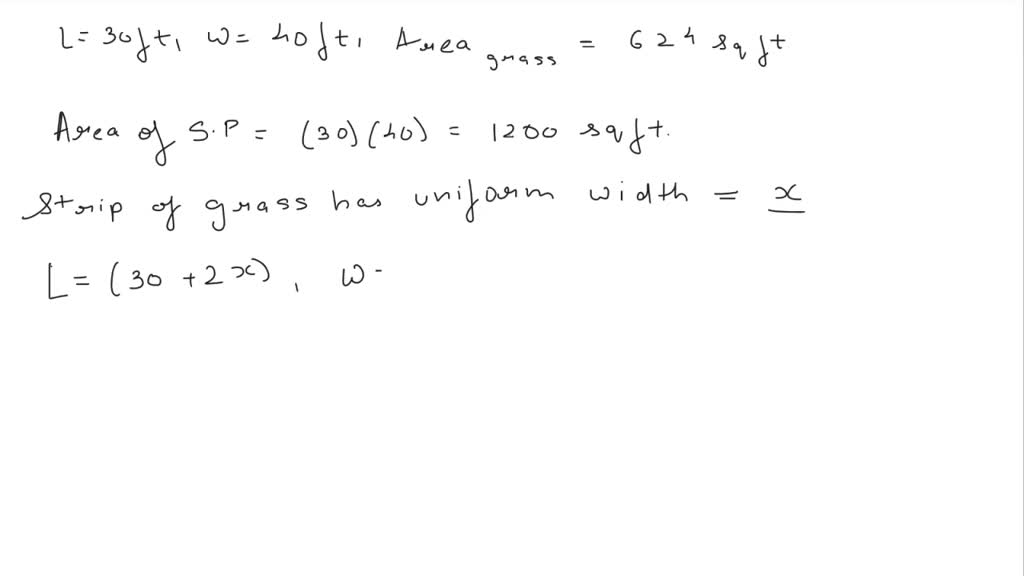 L = 30ft, W = 40ft, Area grass = 624 sq ft
Area of S.P = (30)(40) = 1200 sq ft.
Strip of grass has uniform width = x
L = (30 + 2x), W -